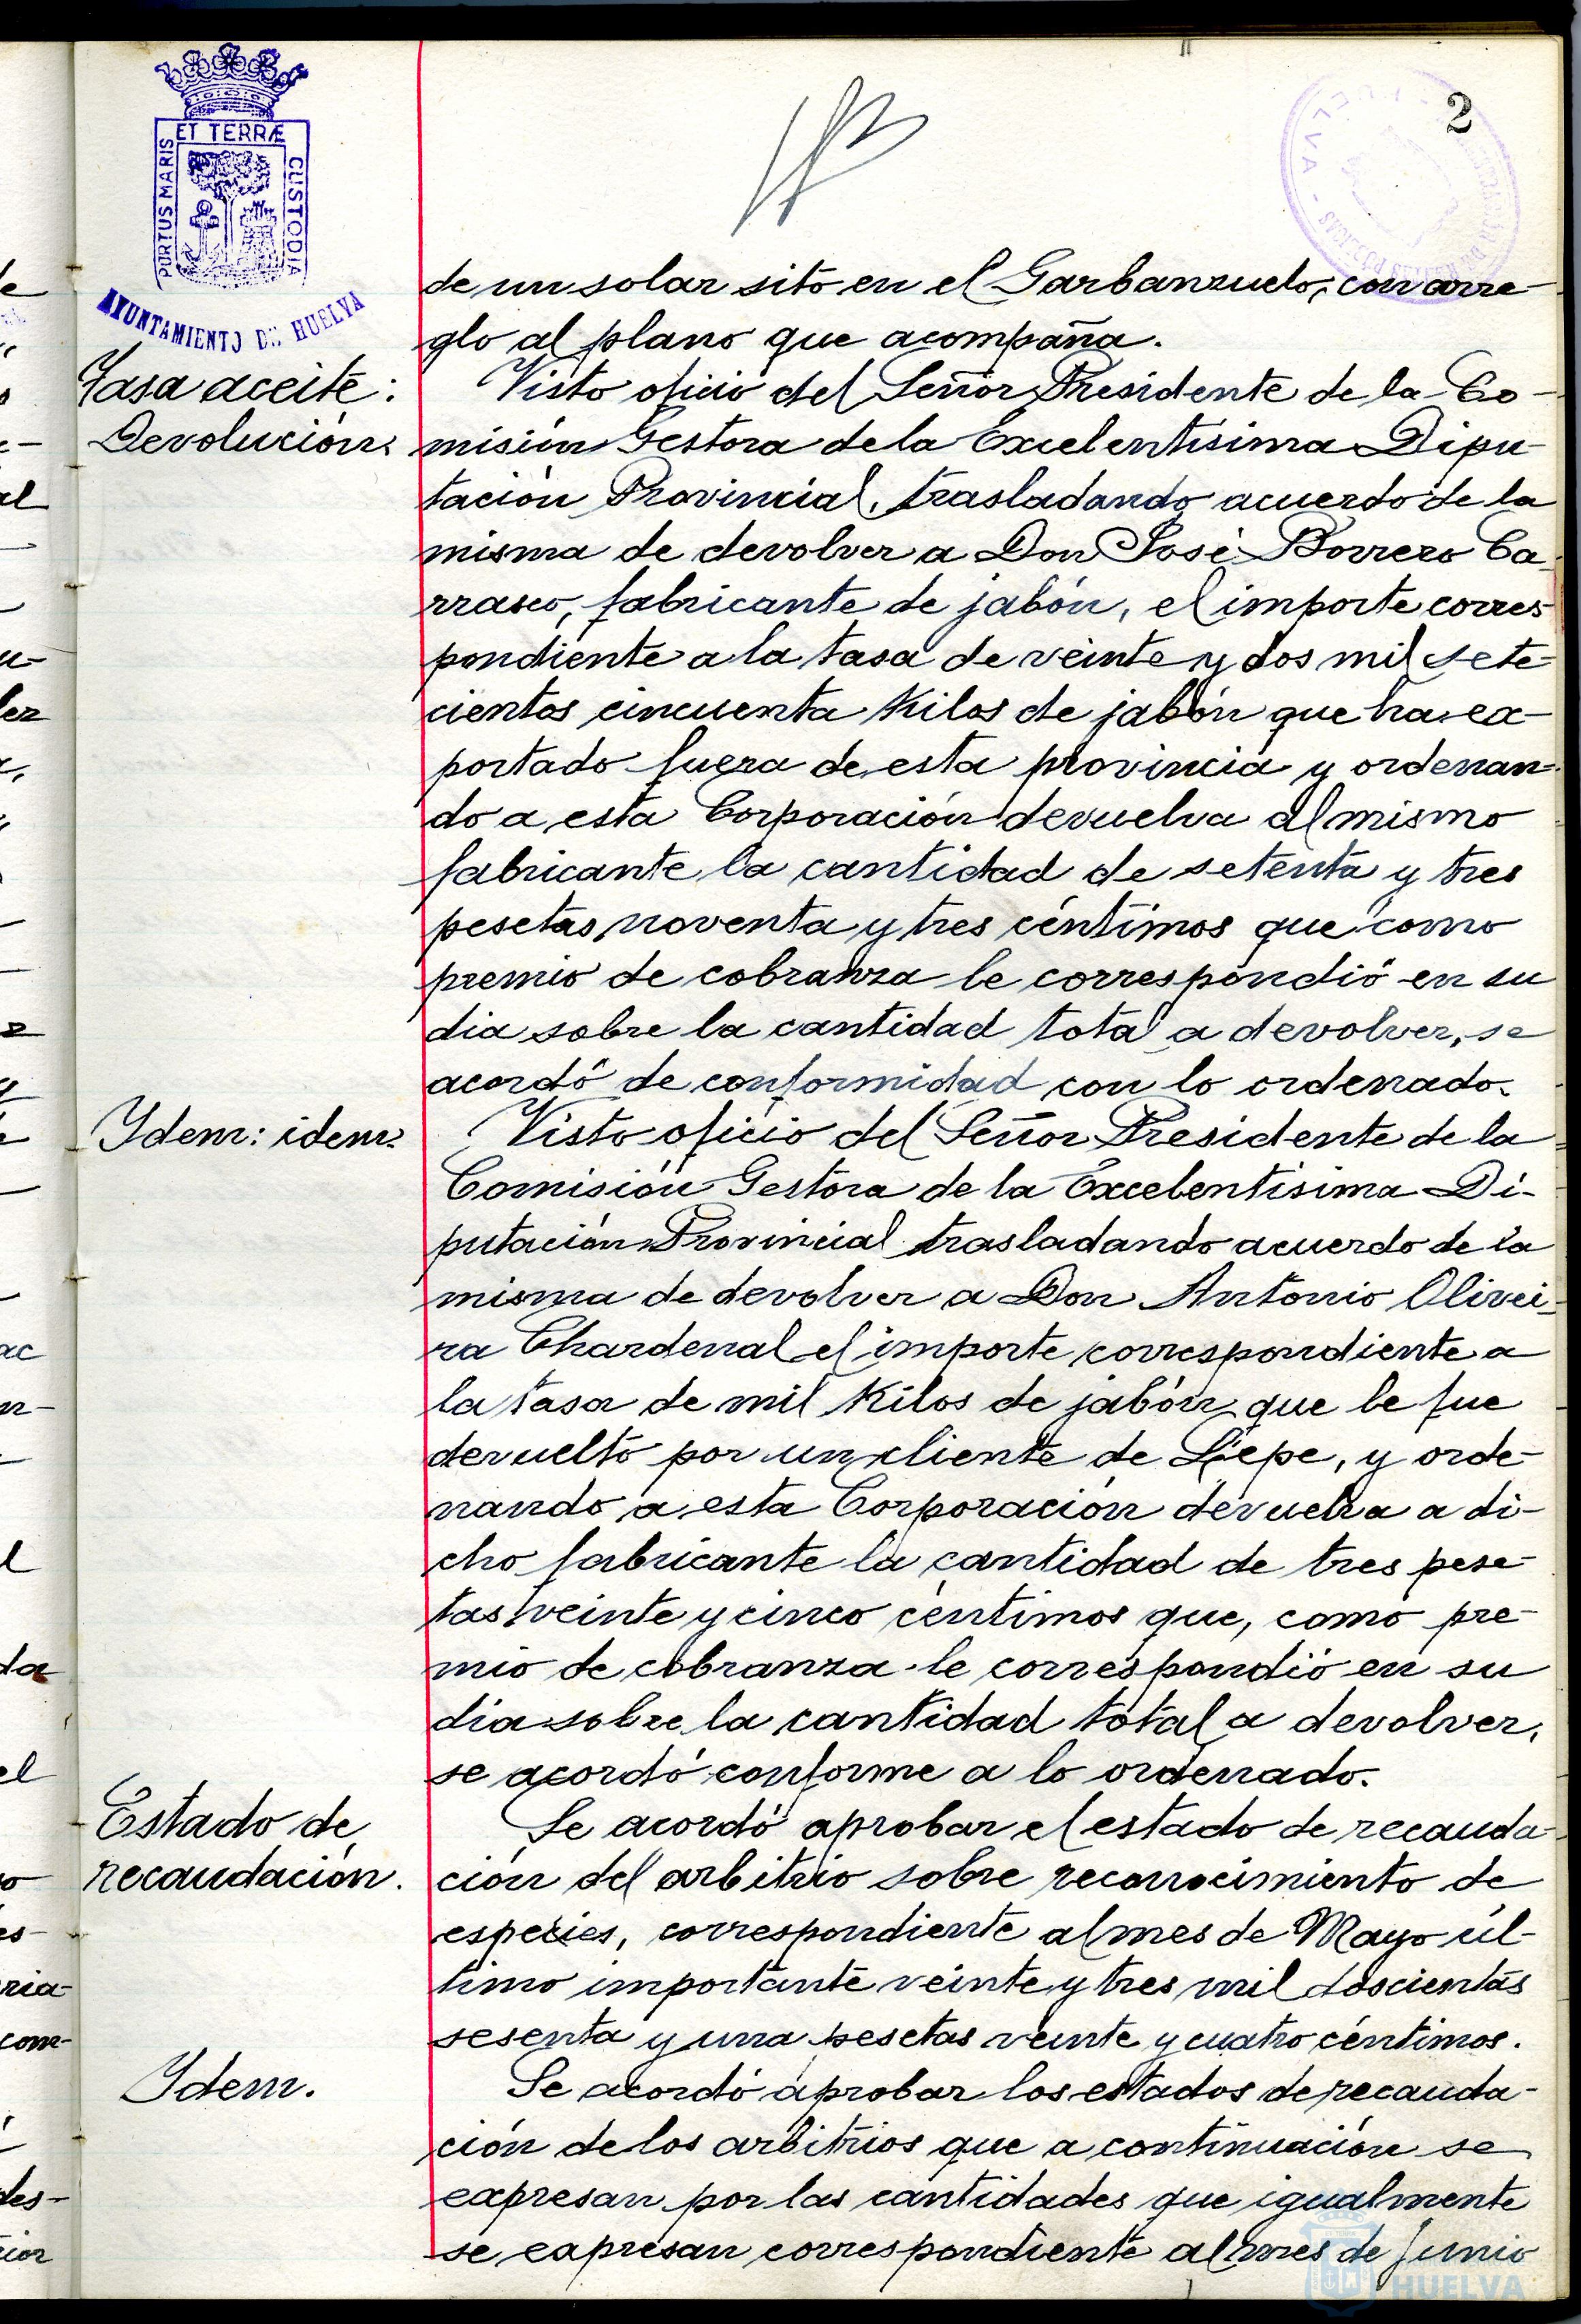 2
ET TERRÆ
PORTUS MARIS
CUSTODIA
AYUNTAMIENTO DE HUELVA
de un solar sito en el Garbanzuelo, con arre-
glo al plano que acompaña.
Tasa aceite:
Devolución.
Visto oficio del Señor Presidente de la Co-
misión Gestora de la Excelentísima Dipu-
tación Provincial, trasladando acuerdo de la
misma de devolver a Don José Borrero Ca-
rrasco, fabricante de jabón, el importe corres-
pondiente a la tasa de veinte y dos mil sete-
cientos cincuenta Kilos de jabón que ha ex-
portado fuera de esta provincia y ordenan-
do a esta Corporación devuelva al mismo
fabricante la cantidad de setenta y tres
pesetas noventa y tres céntimos que como
premio de cobranza le correspondió en su
dia sobre la cantidad total a devolver, se
acordó de conformidad con lo ordenado.
Ydem: idem.
Visto oficio del Señor Presidente de la
Comisión Gestora de la Excelentísima Di-
putación Provincial trasladando acuerdo de la
misma de devolver a Don Antonio Olivei-
ra Chardenal el importe correspondiente a
la tasa de mil Kilos de jabón que le fue
devuelto por un cliente de Lepe, y orde-
nando a esta Corporación devuelva a di-
cho fabricante la cantidad de tres pese-
tas veinte y cinco céntimos que, como pre-
mio de cobranza le correspondió en su
día sobre la cantidad total a devolver,
se acordó conforme a lo ordenado.
Estado de
recaudación.
Se acordó aprobar el estado de recauda-
ción del arbitrio sobre reconocimiento de
especies, correspondiente al mes de Mayo úl-
timo importante veinte y tres mil doscientas
sesenta y una pesetas veinte y cuatro céntimos.
Ydem.
Se acordó aprobar los estados de recauda-
ción de los arbitrios que a continuación se
expresan por las cantidades que igualmente
se expresan correspondiente al mes de Junio
HUELVA